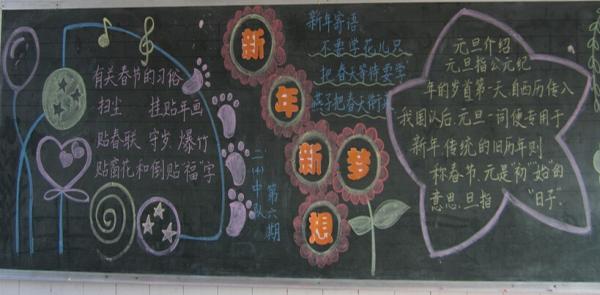 有关春节的习俗
扫尘 挂贴年画
贴春联 守岁 爆竹
贴窗花和倒贴"福"字
新
年
新
梦
想
二(4)中队
第六期
新年寄语
不要学花儿只
把春天等待要学
燕子把春天衔来
元旦介绍
元旦指公元纪
年的岁首第一天.自西历传入
我国以后,元旦一词便专用于
新年.传统的旧历年则
称春节.元是"初""始"的
意思.旦指"日子".